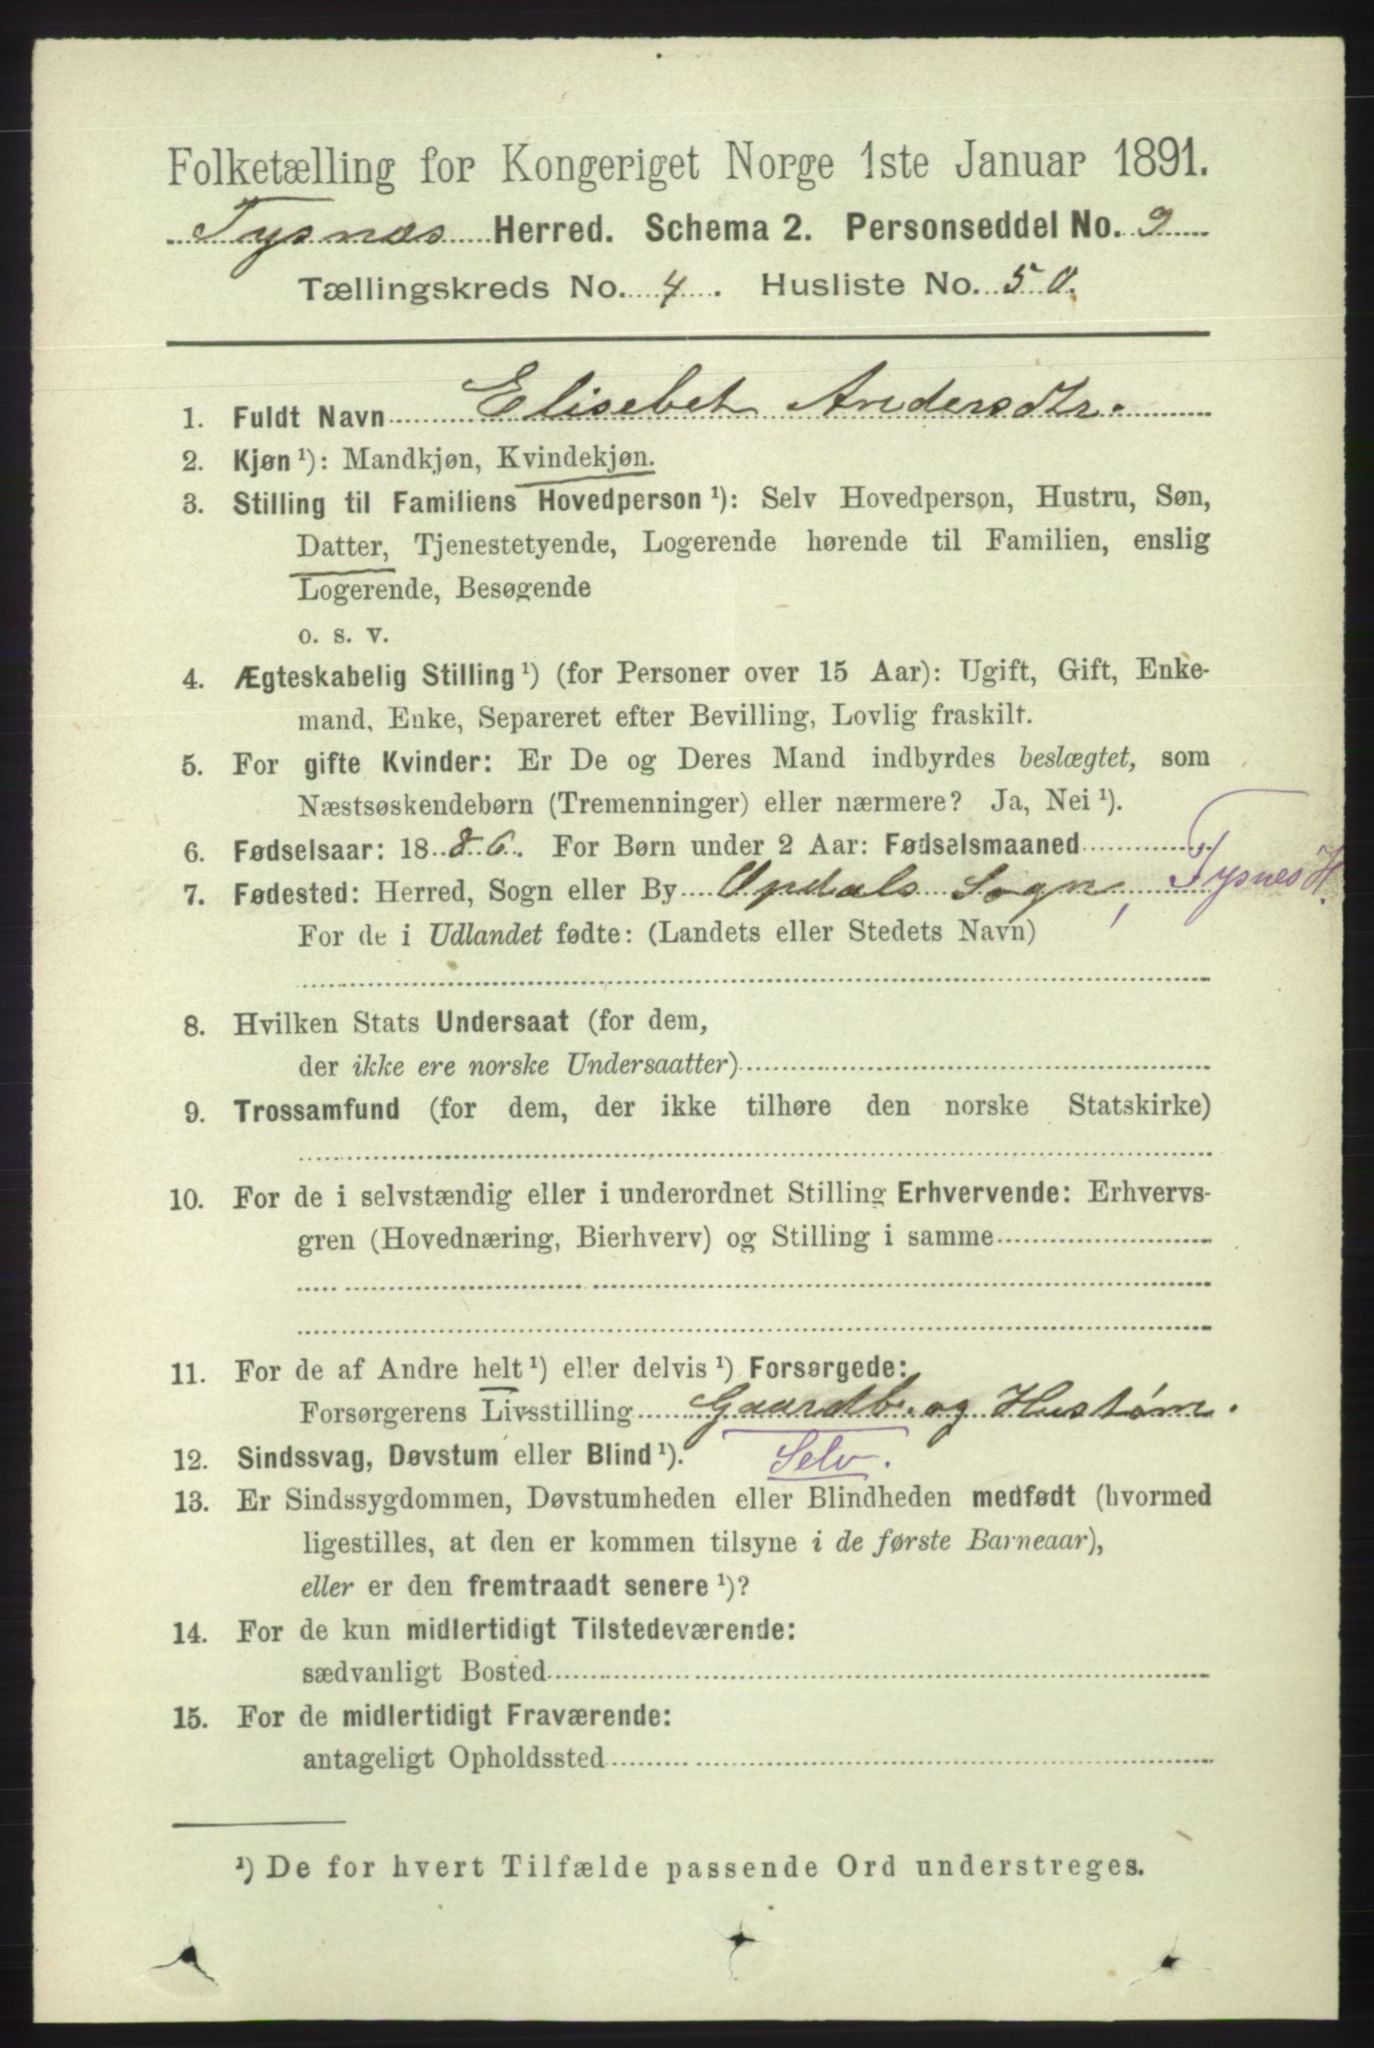 Folketælling for Kongeriget Norge 1ste Januar 1891.
Tysnæs Herred. Schema 2. Personseddel No. 9
Tællingskreds No. 4. Husliste No. 50.
1. Fuldt Navn Elisebet Andersdtr.
2. Kjøn ¹): Mandkjøn, Kvindekjøn.
3. Stilling til Familiens Hovedperson ¹): Selv Hovedperson, Hustru, Søn,
Datter, Tjenestetyende, Logerende hørende til Familien, enslig
Logerende, Besøgende
o. s. v.
4. Ægteskabelig Stilling ¹) (for Personer over 15 Aar): Ugift, Gift, Enke-
mand, Enke, Separeret efter Bevilling, Lovlig fraskilt.
5. For gifte Kvinder: Er De og Deres Mand indbyrdes beslægtet, som
Næstsøskendebørn (Tremenninger) eller nærmere? Ja, Nei ¹).
6. Fødselsaar: 1886. For Børn under 2 Aar: Fødselsmaaned
7. Fødested: Herred, Sogn eller By Opdals Sogn, Tysnes H.
For de i Udlandet fødte: (Landets eller Stedets Navn)
8. Hvilken Stats Undersaat (for dem,
der ikke ere norske Undersaatter)
9. Trossamfund (for dem, der ikke tilhøre den norske Statskirke)
10. For de i selvstændig eller i underordnet Stilling Erhvervende: Erhvervs-
gren (Hovednæring, Bierhverv) og Stilling i samme
11. For de af Andre helt ¹) eller delvis ¹) Forsørgede:
Forsørgerens Livsstilling Gaardb. og Hustøm.
12. Sindssvag, Døvstum eller Blind ¹). Selv.
13. Er Sindssygdommen, Døvstumheden eller Blindheden medfødt (hvormed
ligestilles, at den er kommen tilsyne i de første Barneaar),
eller er den fremtraadt senere ¹)?
14. For de kun midlertidigt Tilstedeværende:
sædvanligt Bosted
15. For de midlertidigt Fraværende:
antageligt Opholdssted
¹) De for hvert Tilfælde passende Ord understreges.